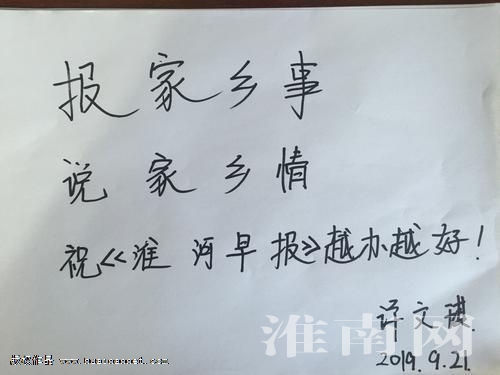 报家乡事
说家乡情
祝《淮河早报》越办越好！
许文琪
2019.9.21.
淮南网
版权作品 www.huainannet.com